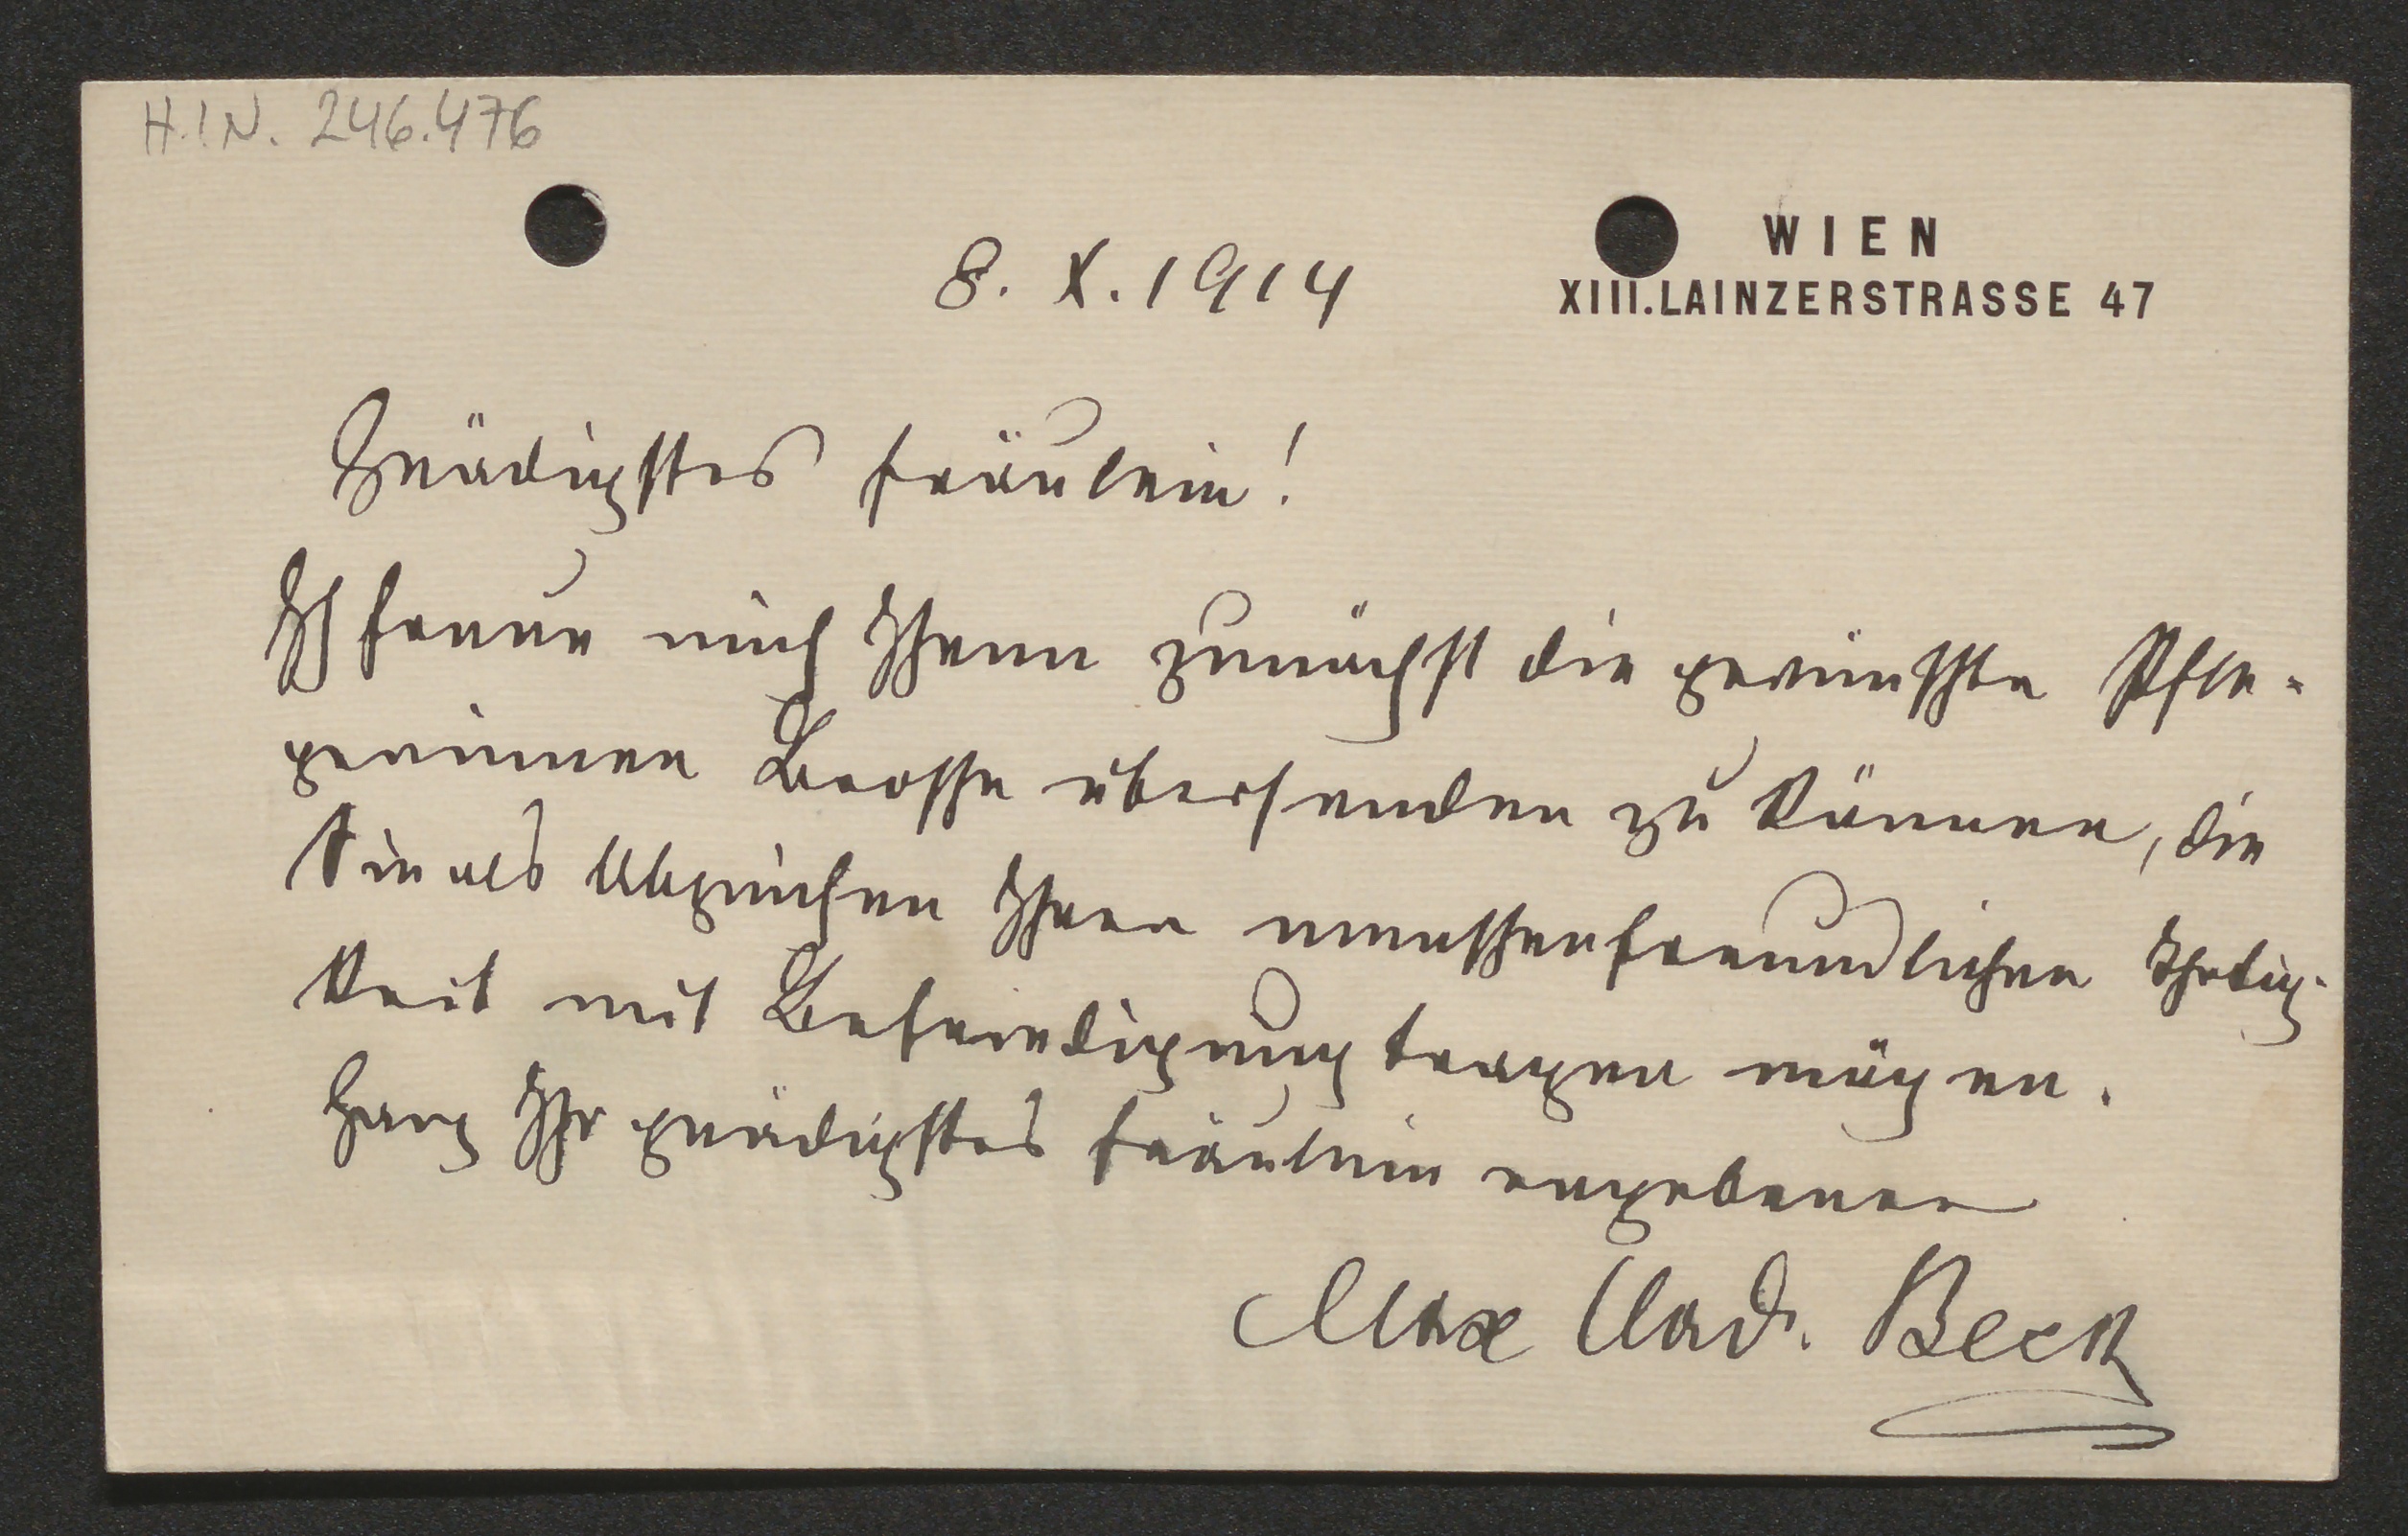 H.I.N. 246.476
8. X. 1914
WIEN
XIII. LAINZERSTRASSE 47
Gnädigstes Fräulein!
Ich freue mich Ihnen zunächst die gewünschte Pfle-
gerinnen Brosche übersenden zu können, die
Sie als Abzeichen Ihrer menschenfreundlichen Thätig-
keit mit Befriedigung tragen mögen.
Ganz Ihr gnädigstes Fräulein ergebener
Max Wlad. Beck